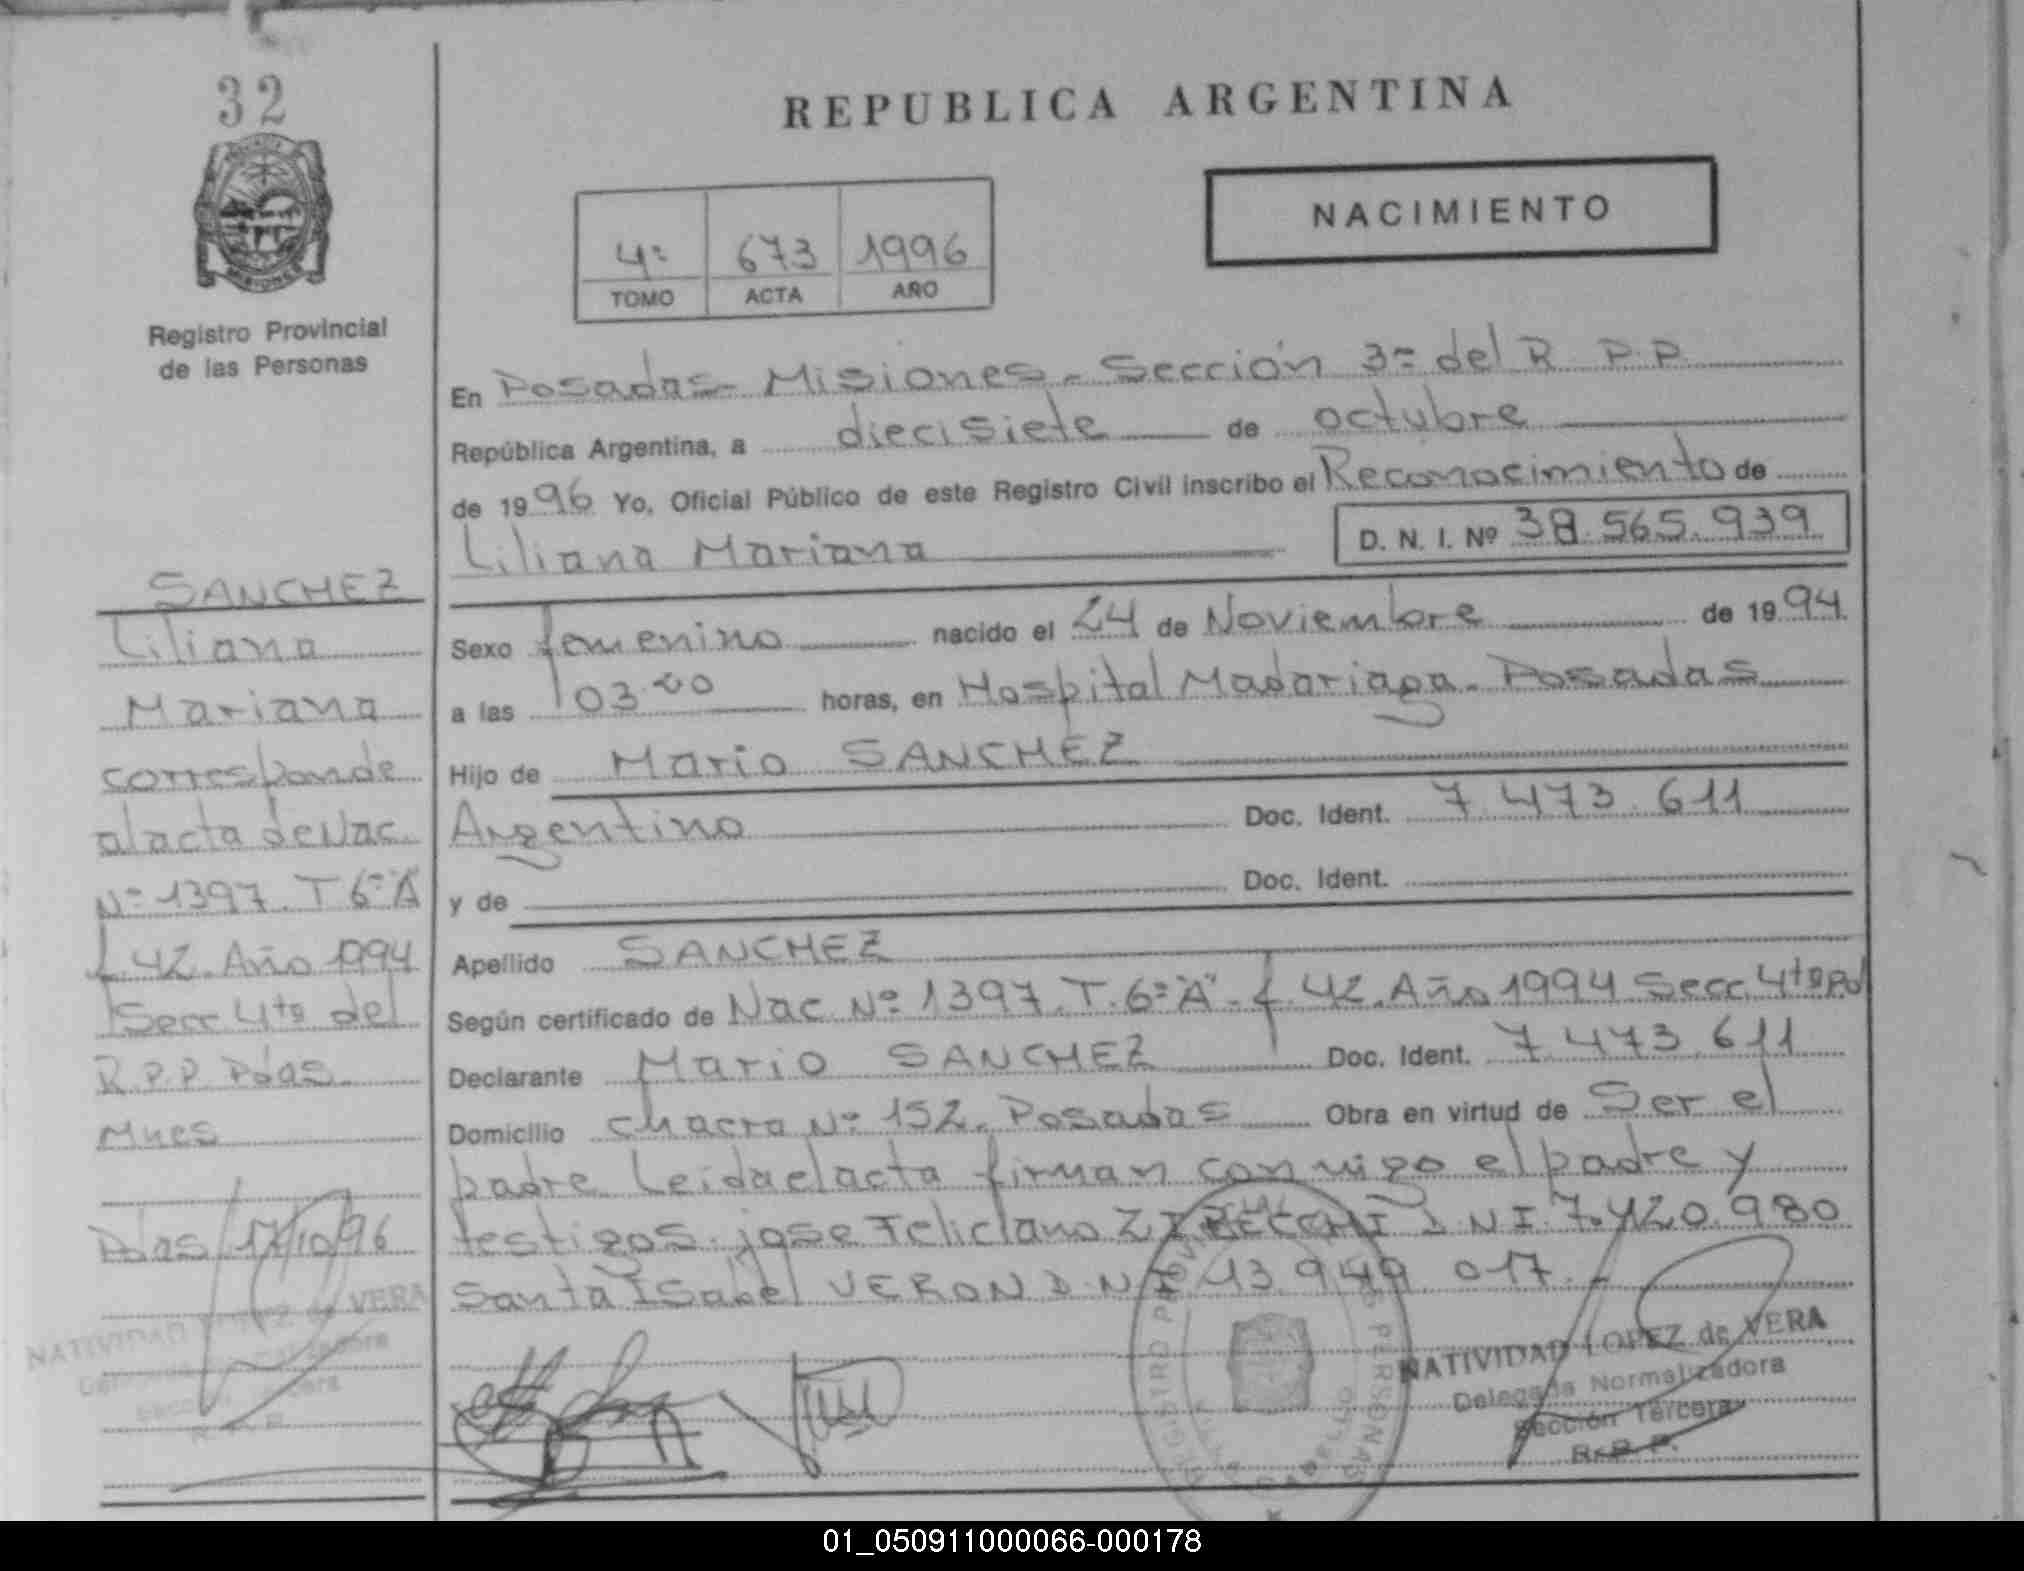 32
Registro Provincial
de las Personas
SANCHEZ
Liliana
Mariana
corresponde
al acta de Nac.
Nº 1397. T 6º "A"
f. 42. Año 1994
Secc 4ta del
R.P.P. Pdas.
Mnes
Pdas 17/10/96
NATIVIDAD LOPEZ de VERA
REPUBLICA ARGENTINA
NACIMIENTO
4º 673 1996
TOMO ACTA AÑO
En Posadas - Misiones - Sección 3º del R P.P.
República Argentina, a diecisiete de octubre
de 1996 Yo, Oficial Público de este Registro Civil inscribo el Reconocimiento de
Liliana Mariana D. N. I. Nº 38.565.939
Sexo femenino nacido el 24 de Noviembre de 1994.
a las 03.00 horas, en Hospital Madariaga - Posadas
Hijo de Mario SANCHEZ
Argentino Doc. Ident. 7.473.611
y de Doc. Ident.
Apellido SANCHEZ
Según certificado de Nac. Nº 1397. T. 6º "A" - f. 42. Año 1994 Secc. 4ta
Declarante Mario SANCHEZ Doc. Ident. 7.473.611
Domicilio Chacra Nº 152. Posadas Obra en virtud de Ser el
padre Leida el acta firman conmigo el padre y
testigos. jose Feliciano D N I. 7.420.980
Santa Isabel VERON D.N.I. 13.949.017.-
NATIVIDAD LOPEZ de VERA
Delegada Normalizadora
Sección Tercera
R. P. P.
01_050911000066-000178